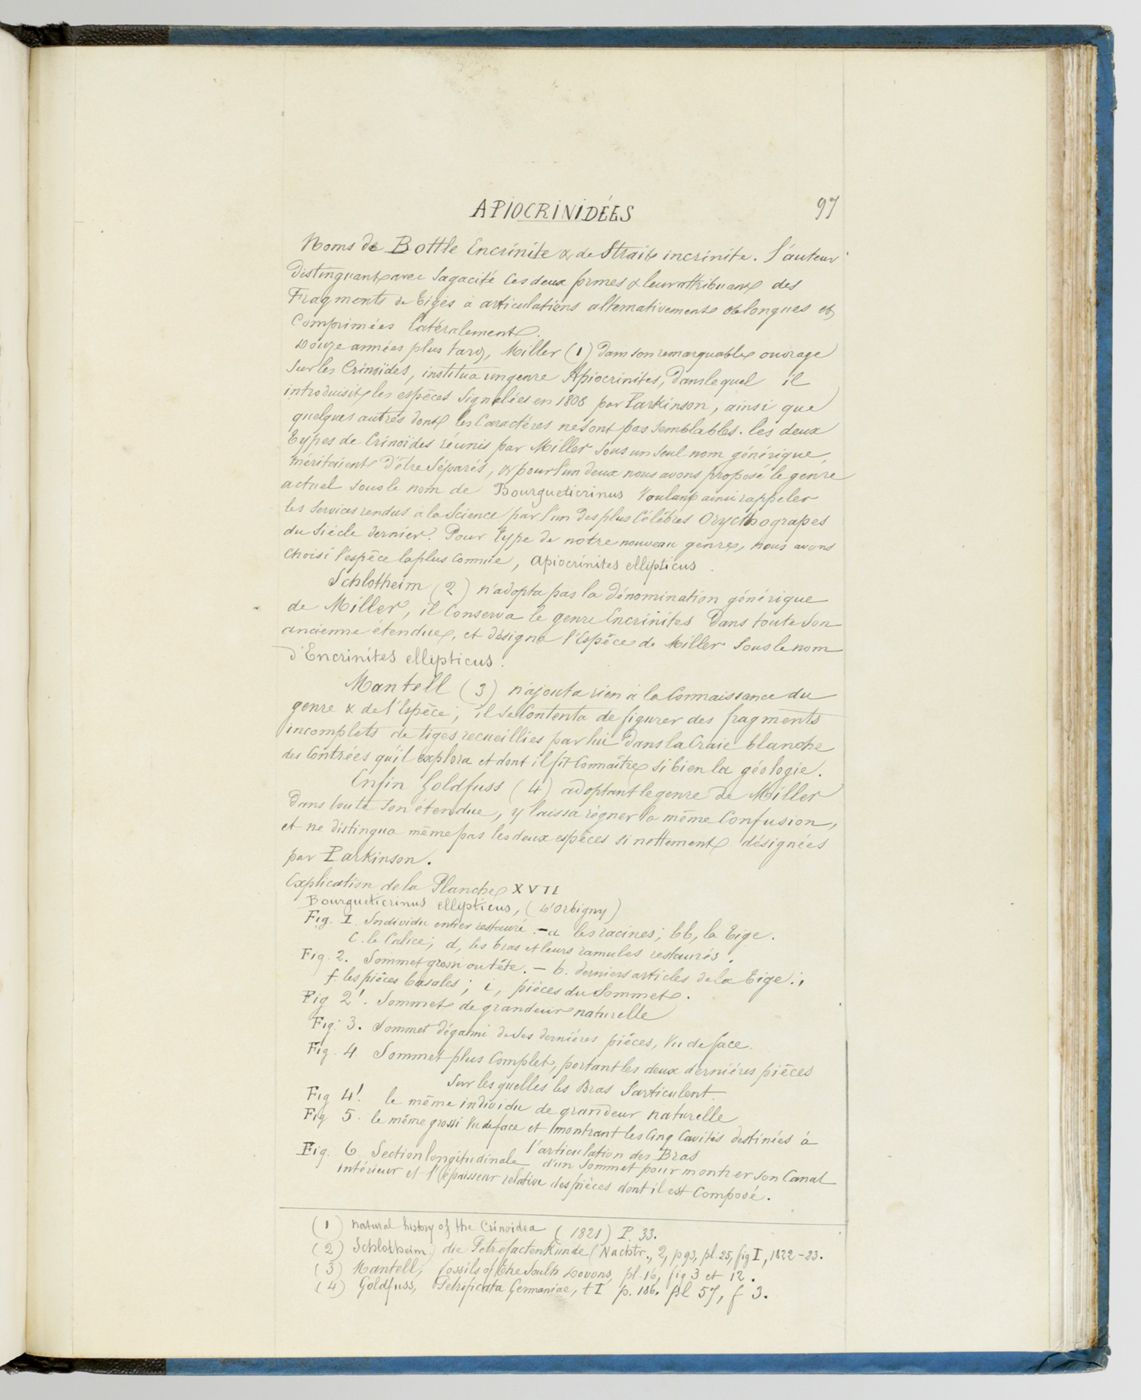 APIOCRINIDÉES 97
Noms de Bottle Encrinite & de Strait incrinite. L'auteur
distinguant avec sagacité ces deux formes & leur attribuant des
Fragments de tiges à articulations alternativement oblongues et
Comprimées latéralement.
Douze années plus tard, Miller (1) dans son remarquable ouvrage
sur les Crinoïdes, institua un genre Apiocrinites, dans lequel il
introduisit les espèces signalées en 1808 par Parkinson, ainsi que
quelques autres dont les Caractères ne sont pas semblables. les deux
types de Crinoïdes réunis par Miller sous un seul nom générique,
méritaient d'être séparés, & pour l'un deux nous avons proposé le genre
actuel sous le nom de Bourgueticrinus Voulant ainsi rappeler
les services rendus à la Science par l'un des plus Célèbres Orycthograpes
du siècle dernier. Pour type de notre nouveau genre, nous avons
choisi l'espèce la plus Connue, Apiocrinites ellipticus.
Schlotheim (2) n'adopta pas la dénomination générique
de Miller, il Conserva le genre Encrinites dans toute son
ancienne étendue, et désigna l'Espèce de Miller sous le nom
d'Encrinites ellipticus.
Mantell (3) n'ajouta rien à la Connaissance du
genre & de l'Espèce; il se Contenta de figurer des fragments
incomplets de tiges recueillies par lui dans la Craie blanche
des Contrées qu'il explora et dont il fit Connaître si bien la géologie.
Enfin Goldfuss (4) adoptant le genre de Miller
dans toute son étendue, y laissa régner la même Confusion,
et ne distingua même pas les deux espèces si nettement désignées
par Parkinson.
Explication de la Planche XVII
Bourgueticrinus ellipticus, (D'Orbigny)
Fig. I. Individu entier restauré. - a les racines; bb, la tige.
C. le Calice; d, les bras et leurs ramules restaurés.
Fig. 2. Sommet grossi ou tête. - b. derniers articles de la Tige;
f les pièces basales; e, pièces du Sommet.
Fig 2'. Sommet de grandeur naturelle
Fig. 3. Sommet dégarni de ses dernières pièces, Vu de face.
Fig. 4 Sommet plus Complet, portant les deux dernières pièces
sur lesquelles les Bras s'articulent.
Fig 4'. le même individu de grandeur naturelle
Fig 5. le même grossi Vu de face et montrant les Cinq Cavités destinées à
l'articulation des Bras
Fig. 6 Section longitudinale d'un Sommet pour montrer son Canal
intérieur et l'épaisseur relative des pièces dont il est Composé.
(1) natural history of the Crinoidea (1821) P. 33.
(2) Schlotheim, die Petrefactenkunde (Nachtr., 2, p 93, pl. 25, fig I, 1822-23.
(3) Mantell, fossils of the South Dovons, pl. 16, fig 3 et 12.
(4) Goldfuss, Petrificata Germaniae, t I p. 186. pl 57, f 3.